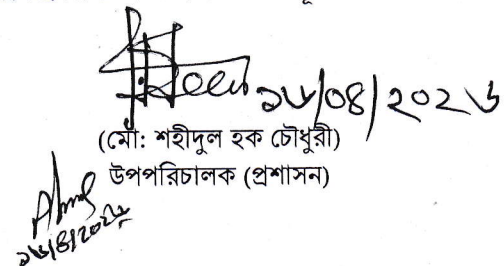 ১৬/০৪/২০২৬
(মো: শহীদুল হক চৌধুরী)
উপপরিচালক (প্রশাসন)
১৬/৪/২০২৬